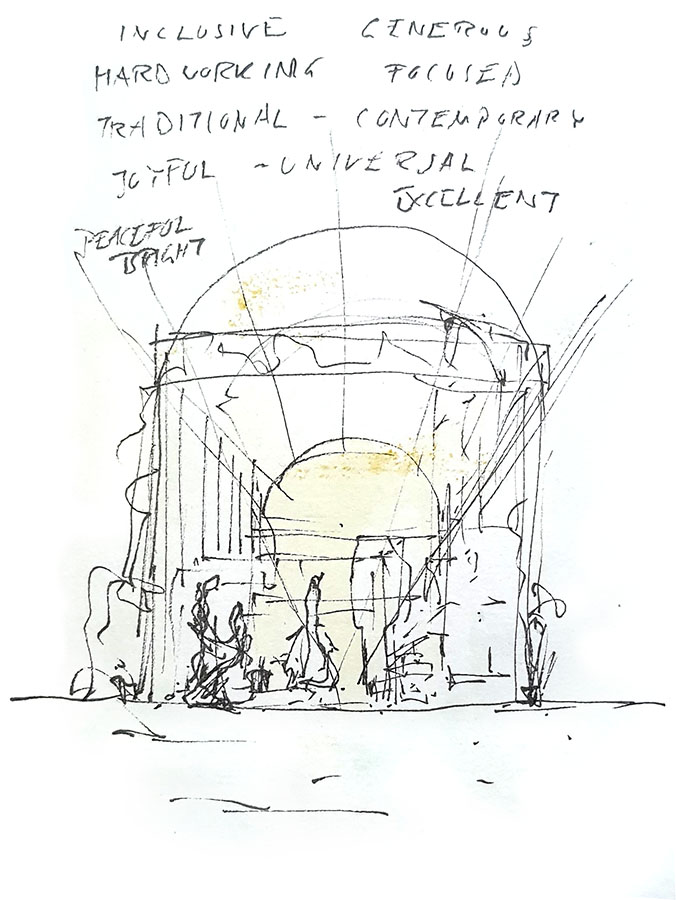 INCLUSIVE GENEROUS
HARDWORKING FOCUSED
TRADITIONAL - CONTEMPORARY
JOYFUL - UNIVERSAL
EXCELLENT
PEACEFUL
BRIGHT